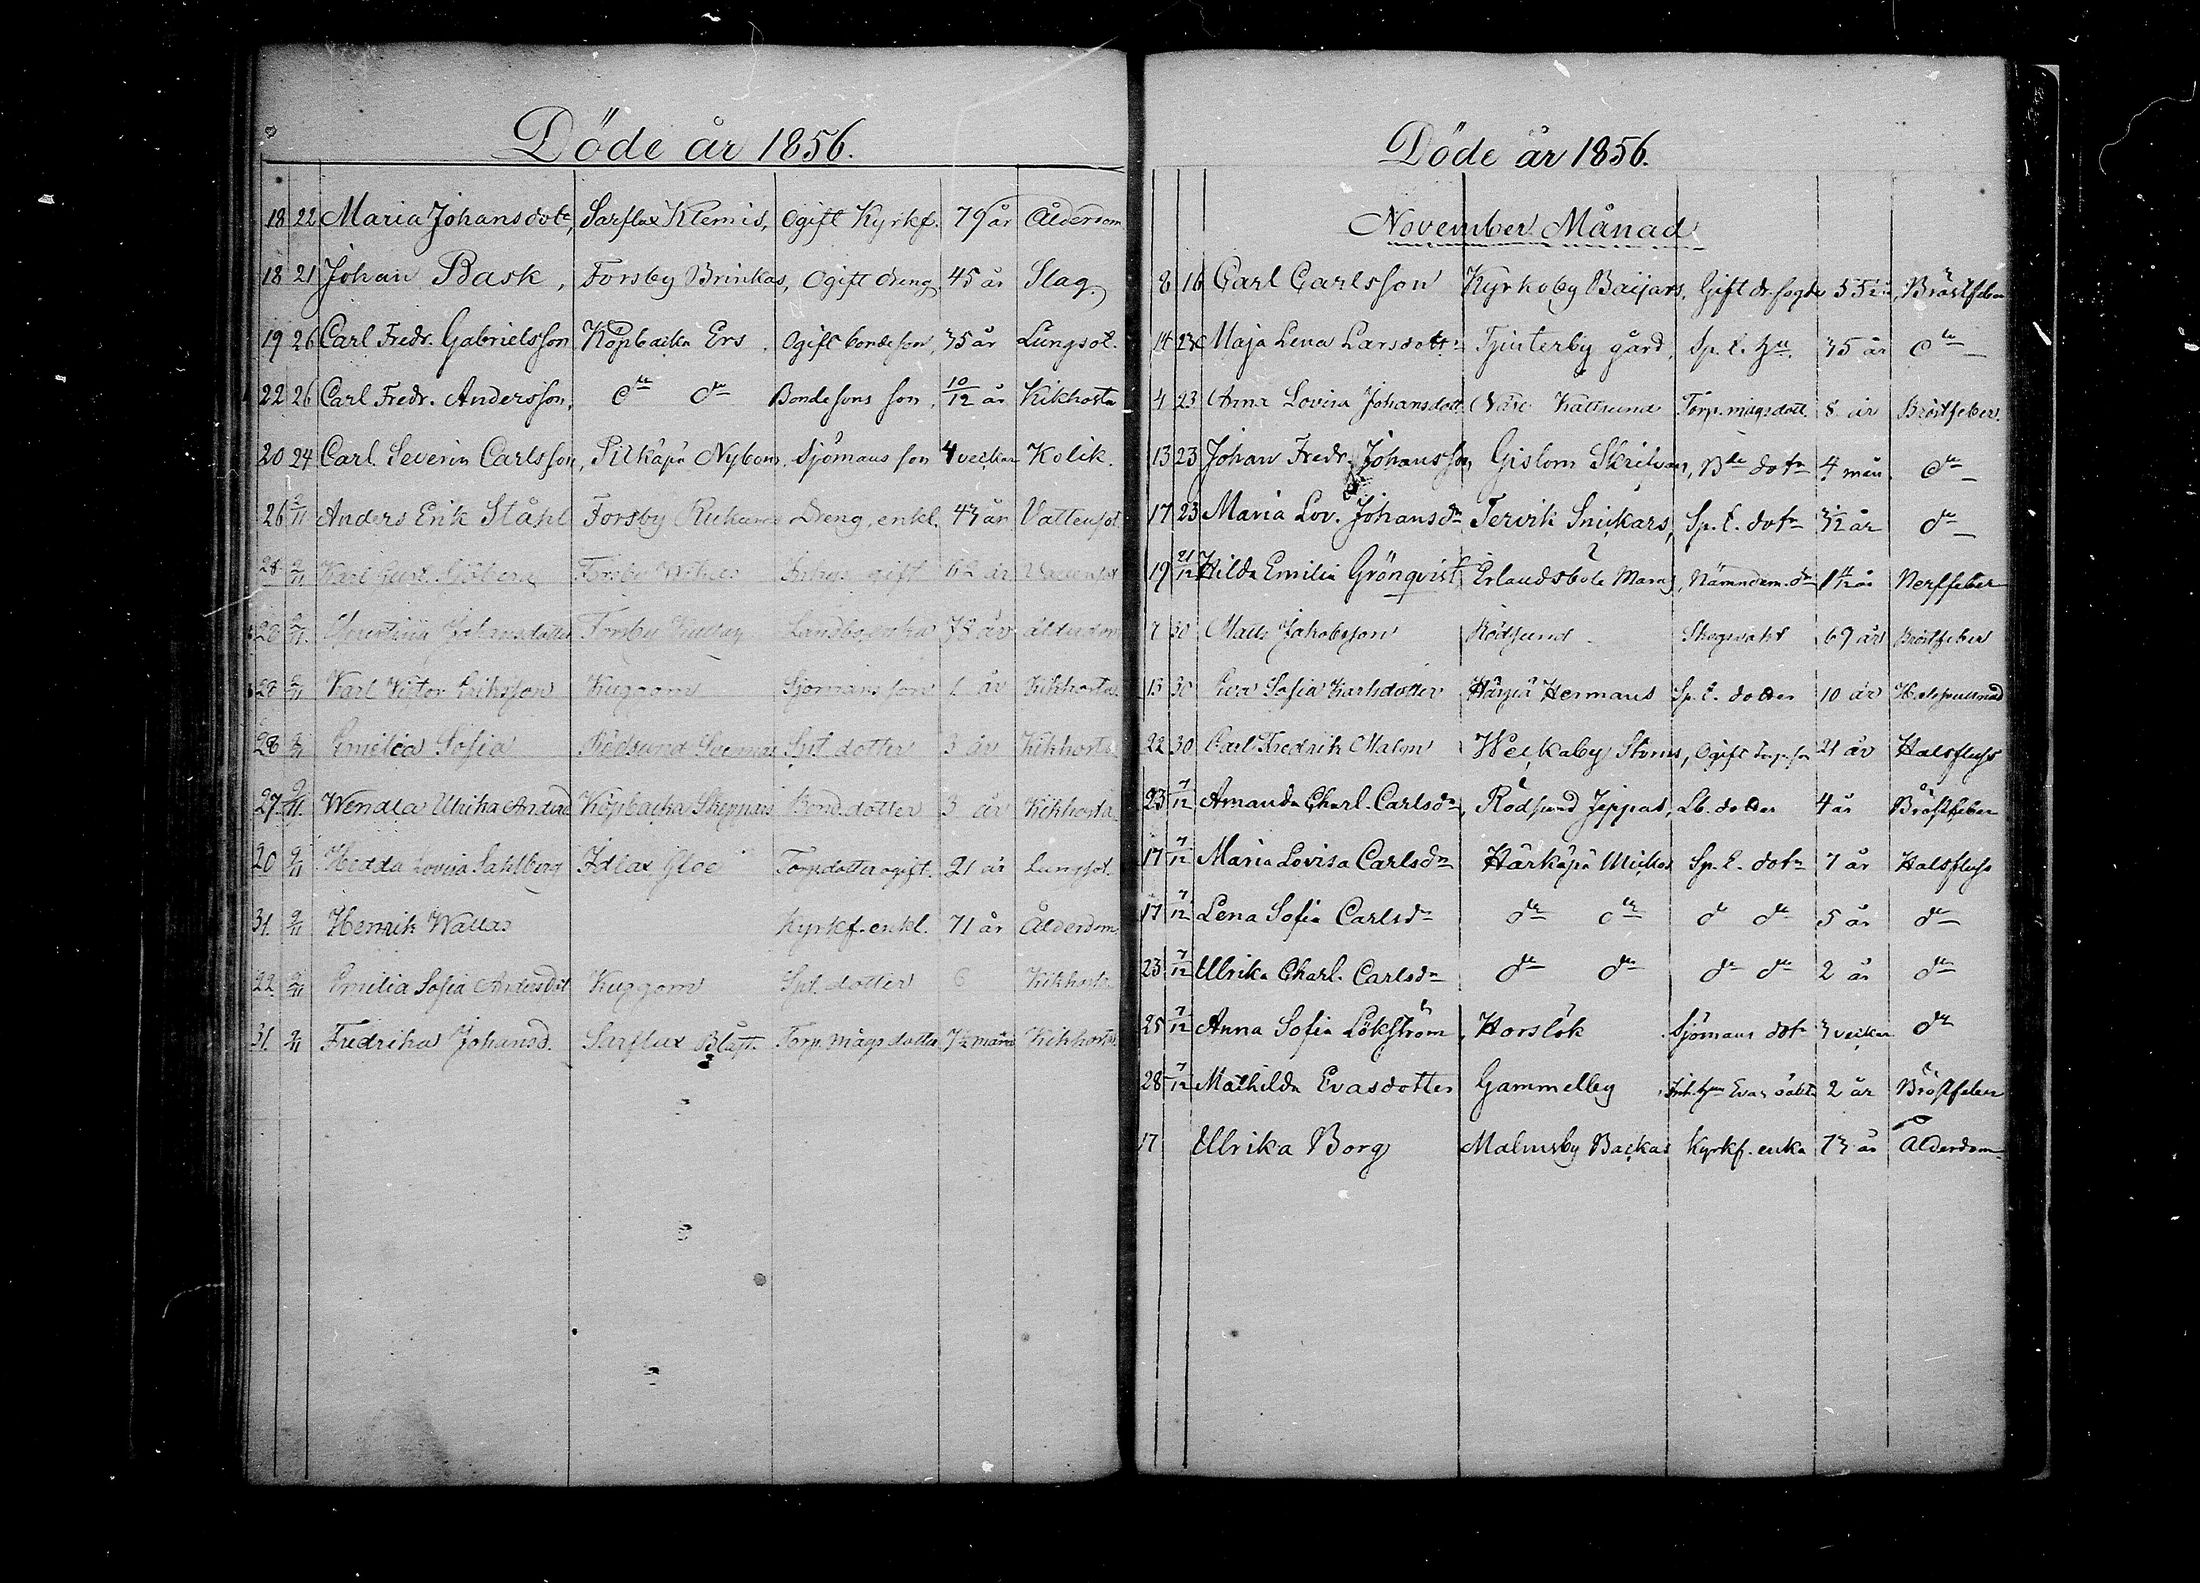 Döde år 1856.
18 22 Maria Johansdotr, Sarflax Klemis, Ogift Kyrkf. 79 år Ålderdom
18 21 Johan Bask, Forsby Brinkas, Ogift dreng, 45 år Slag.
19 26 Carl Fredr. Gabrielsson Köpbacka Ers. Ogift bondeson, 35 år Lungsot.
22 26 Carl Fredr. Andersson, dto dto Bondesons son, 10/12 år Kikhosta
20 24 Carl Severin Carlsson, Pitkäpä Nybom, Sjömans son 4 veckor Kolik.
26 2/11 Anders Erik Ståhl Forsby Dreng, enkl. 43 år Vattusot
28 2/11 Karl Gust. Forsby gift 62 år Vattusot
28 2/11 Johansdotter Forsby 78 år ålderdom
28 2/11 Karl Victor Eriksson Kuggom Sjömans son 1 år Kikhosta
28 2/11 Emelia Sofia Rödsund Spt. dotter 3 år Kikhosta
27. 9/11. Wendla Ulrika Köpbacka Skeppars Bond. dotter 3 år Kikhosta
20 9/11 Hedda Lovisa Sahlberg Idlax Torp.dotter ogift. 21 år Lungsot.
31. 9/11 Henrik Wallas Kyrkf. enkl. 71 år Ålderdom
22. 9/11 Emilia Sofia Andersdot Kuggom Spt. dotter 6 Kikhosta
31. 9/11 Fredrika Johansd. Sarflax Torp. mågs dotter 7 1/2 mån Kikhosta
Döde år 1856.
November Månad
8 16 Carl Carlsson Kyrkoby Baijars, Gift dr. fogde 55 år, Bröstfeber
14 23 Maja Lena Larsdottr Tjusterby gård, Sp. t. 35 år dto
4 23 Anna Lovisa Johansdott. Näse Kättsund Torp. mågsdott. 8 år Bröstfeber.
13 23 Johan Fredr. Johansson Gislom Skrifvars, dotr 4 mån. dto
17 23 Maria Lov. Johansdr Tervik Snickars, Sp. t. dotr 3/12 år dto
19 21/12 Hilda Emilia Grönqvist, Erlandsböle Nämndem. dr år Nerffeber
7 30 Matts Jakobsson Rödsund Skogsvakt 69 år Bröstfeber
13 30 Eva Sofia Karlsdotter Hermans Sp. t. dotter 10 år
22 30 Carl Fredrik Malm Weckaby Storns, Ogift 21 år Halsfluss
23 7/12 Amanda Charl. Carlsdr, Rödsund Jeppas, Lb. dotter 4 år Bröstfeber
17 7/12 Maria Lovisa Carlsdr Härkäpä Mickos Sp. t. dotr 7 år Halsfluss
17 7/12 Lena Sofia Carlsdr dto dto do do 5 år dto
23 7/12 Ulrika Charl. Carlsdr dto dto do do 2 år dto
25 7/12 Anna Sofia Lökström, Horslök Sjömans dotr 3 veckor dto
28 7/12 Mathilda Evasdotter Gammelby Evas oäkta 2 år Bröstfeber
17 Ulrika Borg Malmsby Backas Kyrkf. enka 73 år Ålderdom.